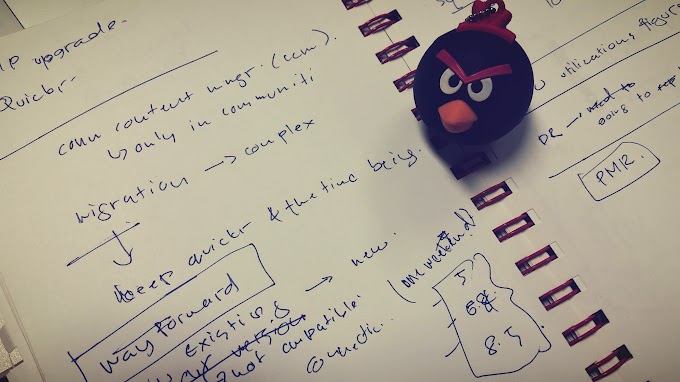 upgrade.
Quickr
conn content mngr. (ccm)
only in communiti
migration → complex
keep quickr for the time being.
way forward
existing → new
not compatible
connectic..
(one weekend)
5
6.
8.5
utilications figure
DR → need to
going to
PMR.